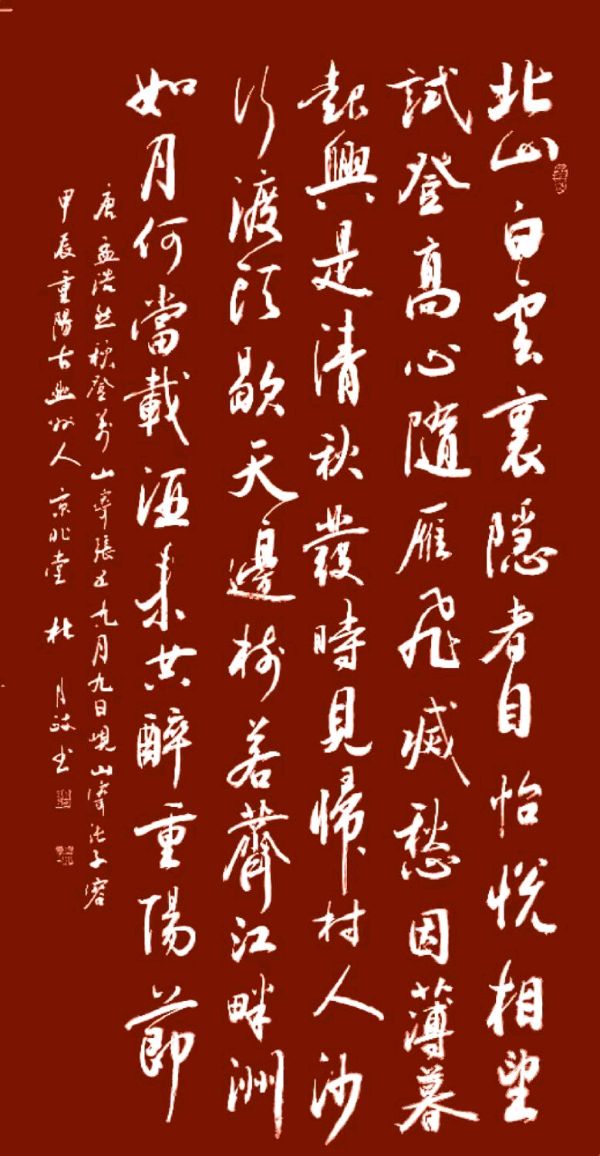 北山白雲裏隱者自怡悅相望
試登高心隨雁飛滅愁因薄暮
起興是清秋發時見歸村人沙
行渡頭歇天邊樹若薺江畔洲
如月何當載酒來共醉重陽節
唐孟浩然秋登萬山寄張五九月九日峴山寄張子容
甲辰重陽古人京兆堂杜月书